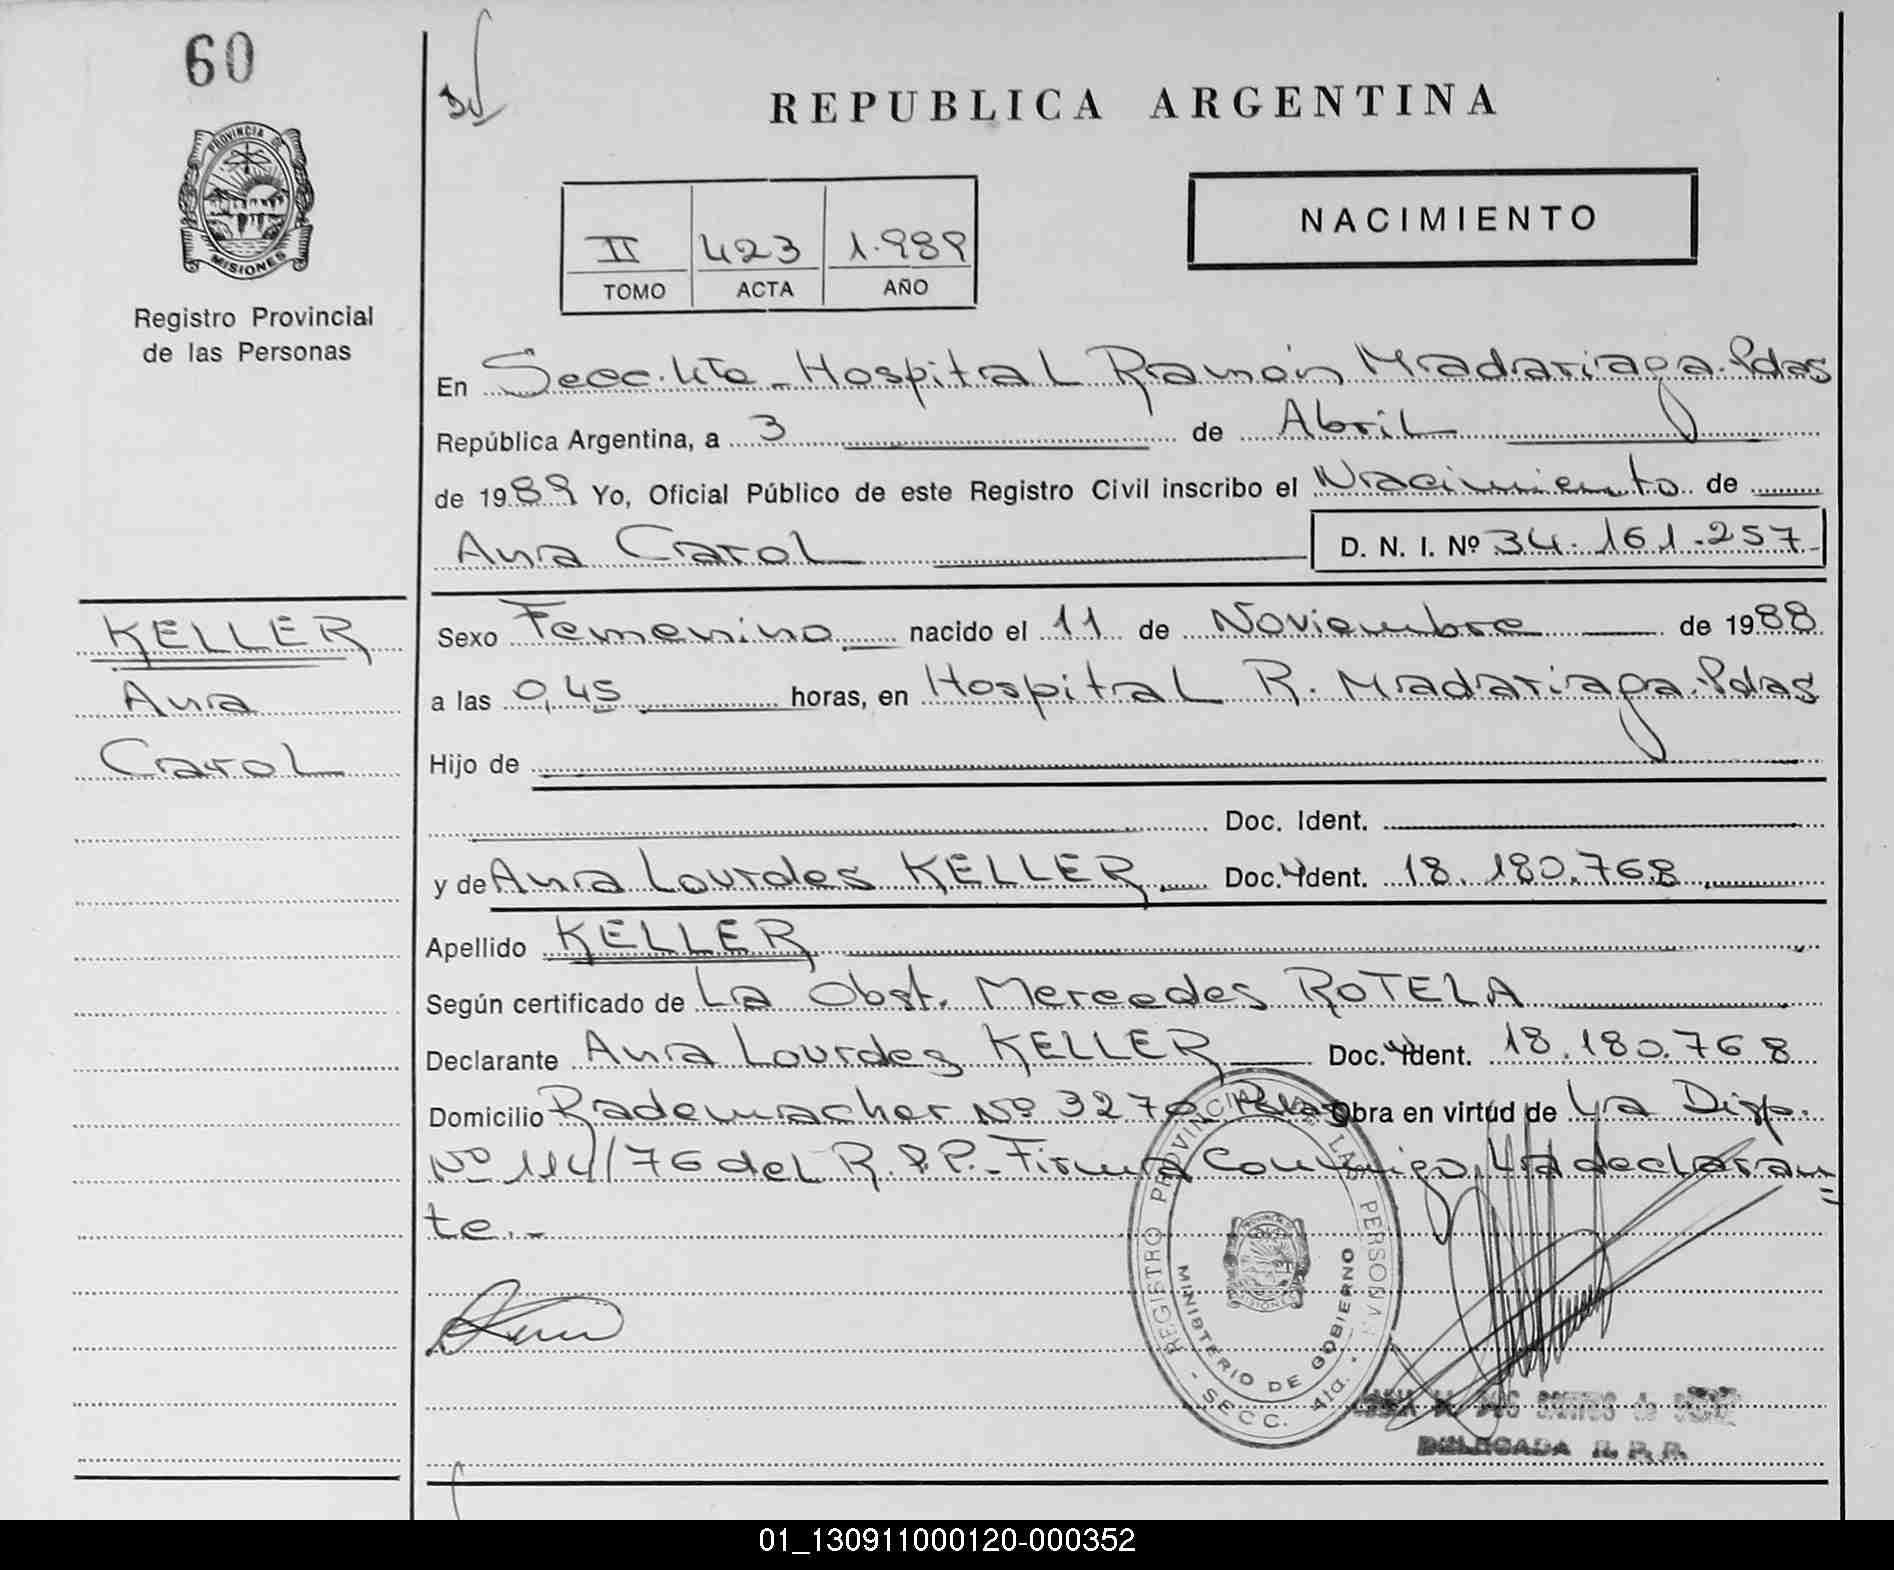 60
PROVINCIA DE
MISIONES
Registro Provincial
de las Personas
KELLER
Ana
Carol
REPUBLICA ARGENTINA
II 423 1.989
TOMO ACTA AÑO
NACIMIENTO
En Secc. 4ta - Hospital Ramón Madariaga. Pdas
República Argentina, a 3 de Abril
de 1989 Yo, Oficial Público de este Registro Civil inscribo el Nacimiento de
Ana Carol D. N. I. Nº 34.161.257
Sexo Femenino nacido el 11 de Noviembre de 1988
a las 0,45 horas, en Hospital R. Madariaga. Pdas
Hijo de
Doc. Ident.
y de Ana Lourdes KELLER Doc. Ident. 18.180.768
Apellido KELLER
Según certificado de La Obst. Mercedes ROTELA
Declarante Ana Lourdes KELLER Doc. Ident. 18.180.768
Domicilio Rademacher Nº 3270 Pdas Obra en virtud de la Disp.
Nº 114/76 del R.P.P.- Firma Conmigo, la declaran
te.-
REGISTRO PROVINCIAL DE LAS PERSONAS
MINISTERIO DE GOBIERNO
- SECC. 4ta. -
DOS SANTOS de
DELEGADA R. P. P.
01_130911000120-000352